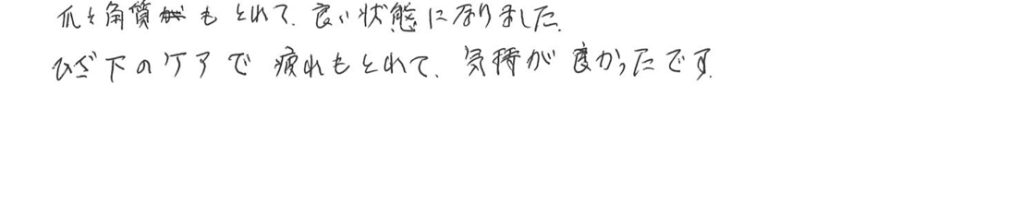 爪と角質もとれて、良い状態になりました。
ひざ下のケアで疲れもとれて、気持が良かったです。